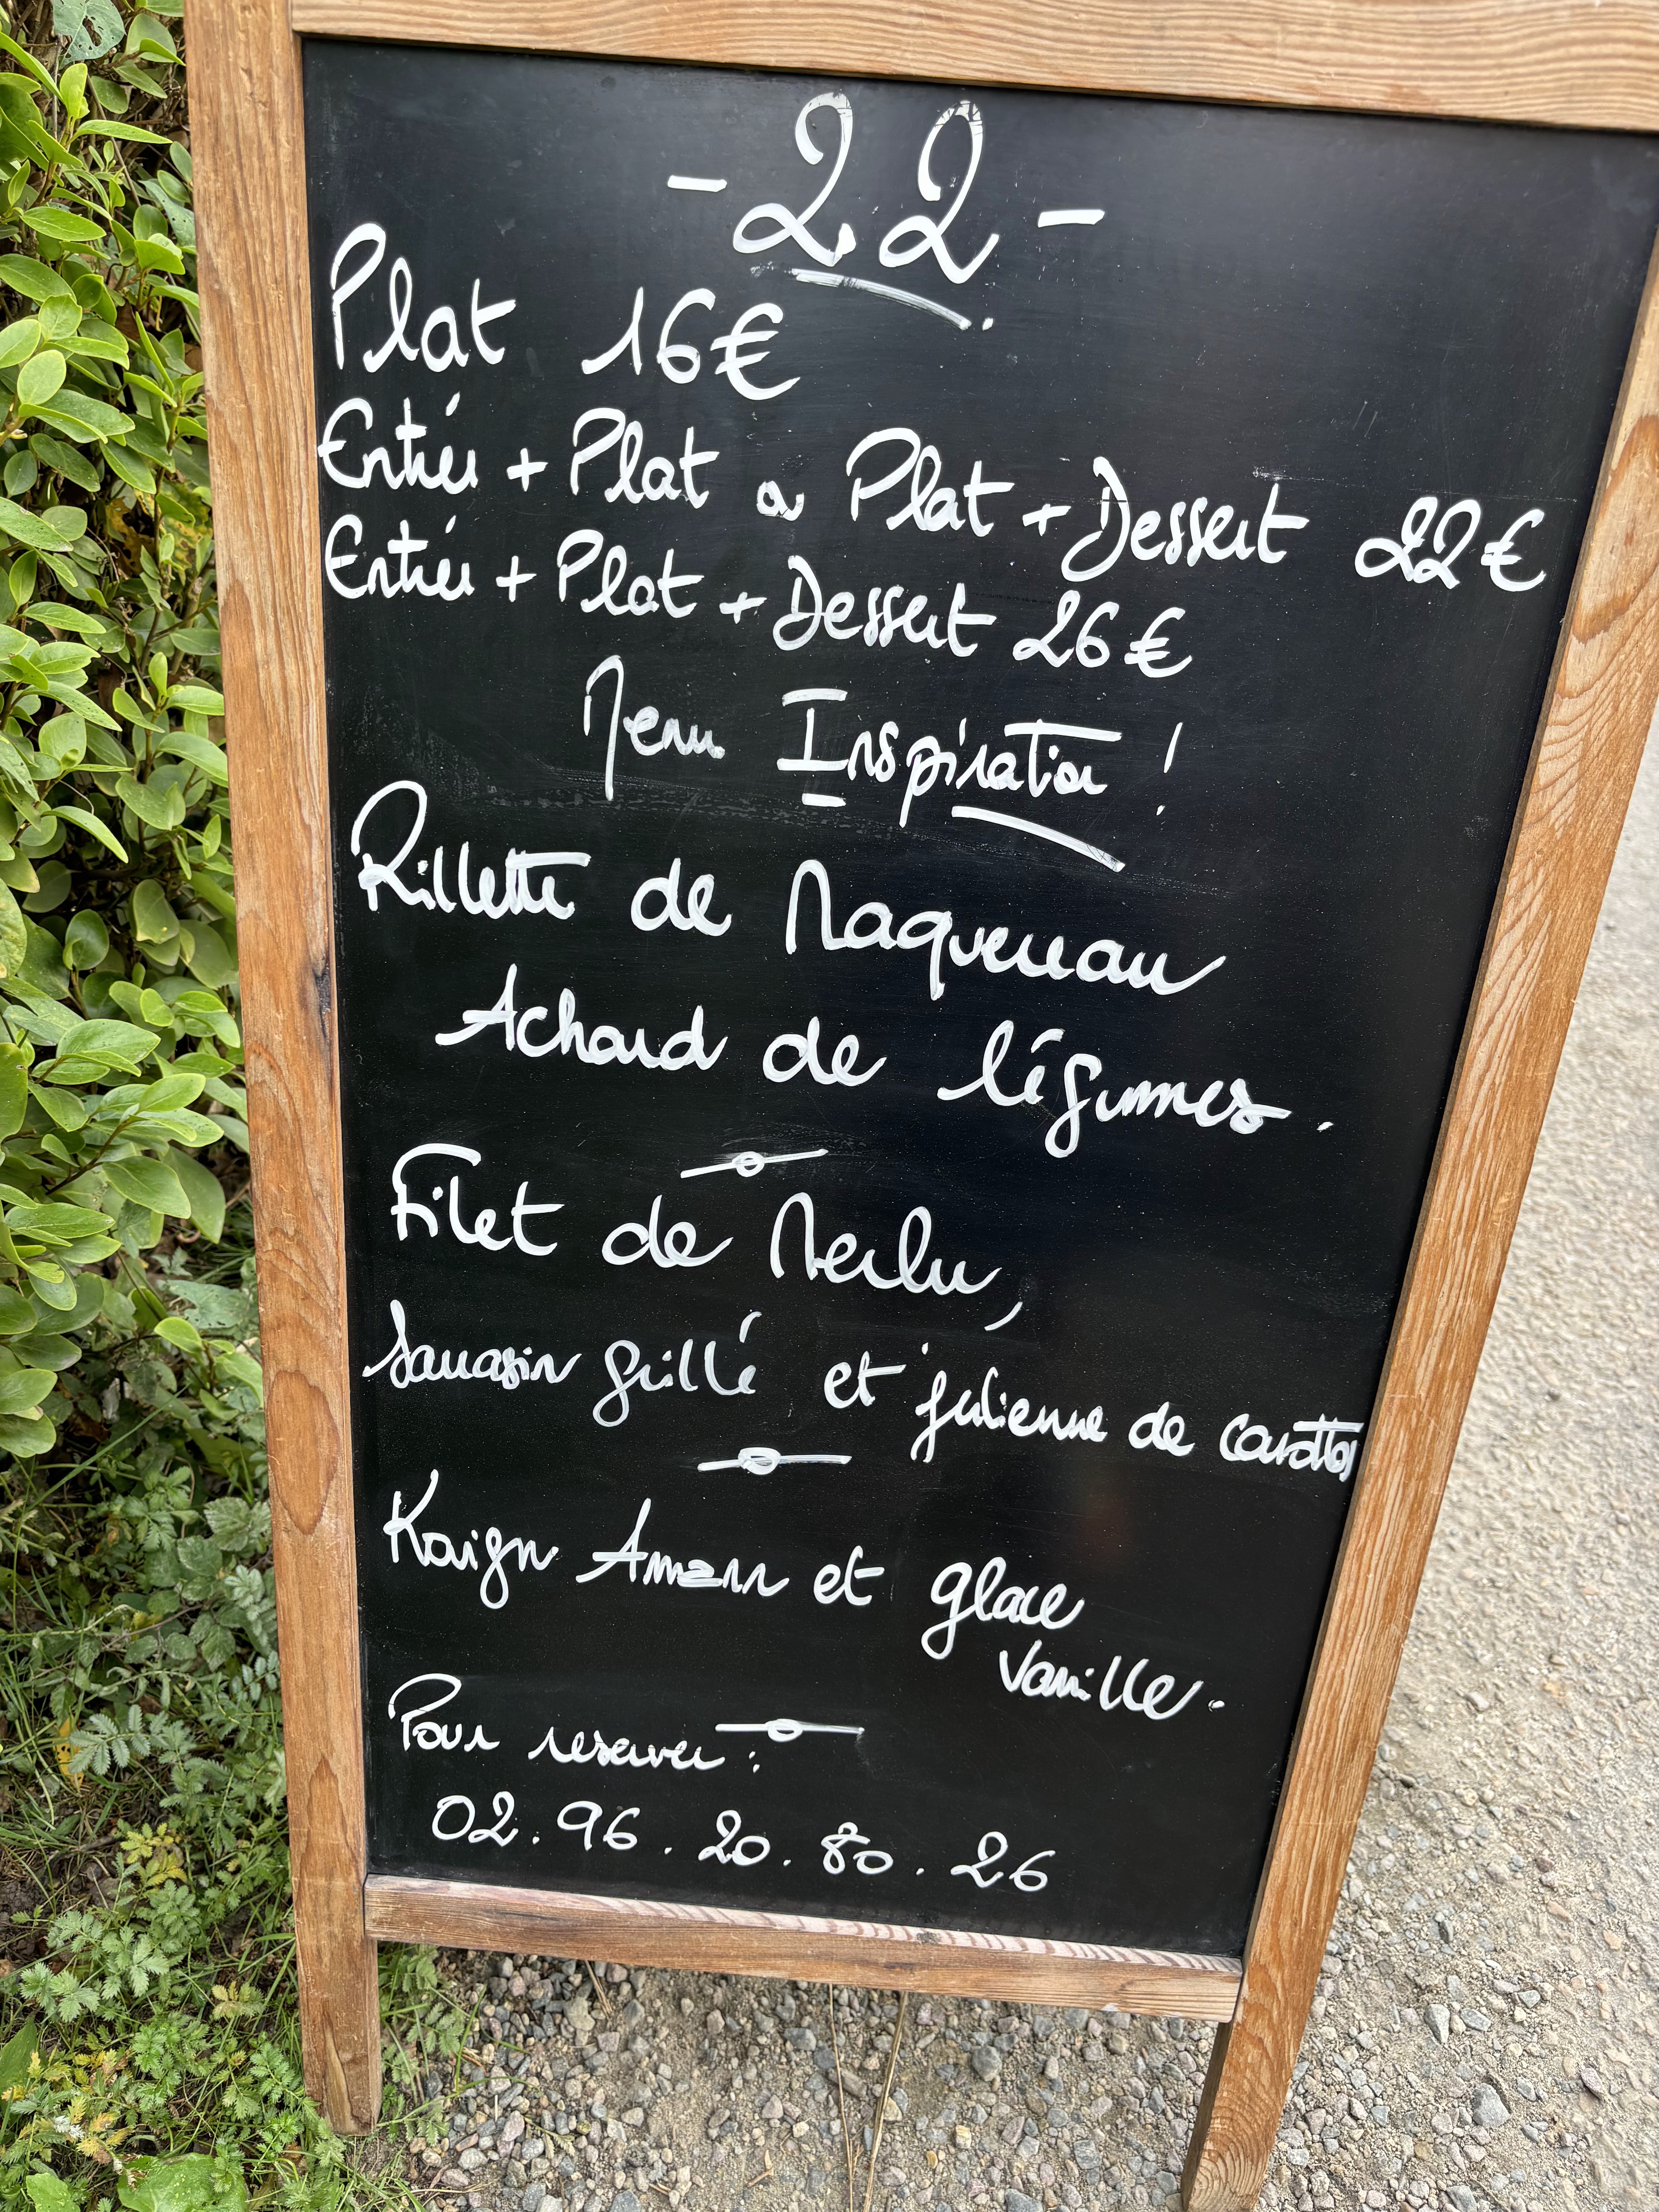 - 22 -
Plat 16€
Entrée + Plat ou Plat + Dessert 22€
Entrée + Plat + Dessert 26€
Menu Inspiration !
Rillette de Maquereau
Achard de légumes.
Filet de Merlu,
Sarrasin grillé et julienne de carottes
Kaign Amann et glace
vanille.
Pour reserver :
02.96.20.80.26